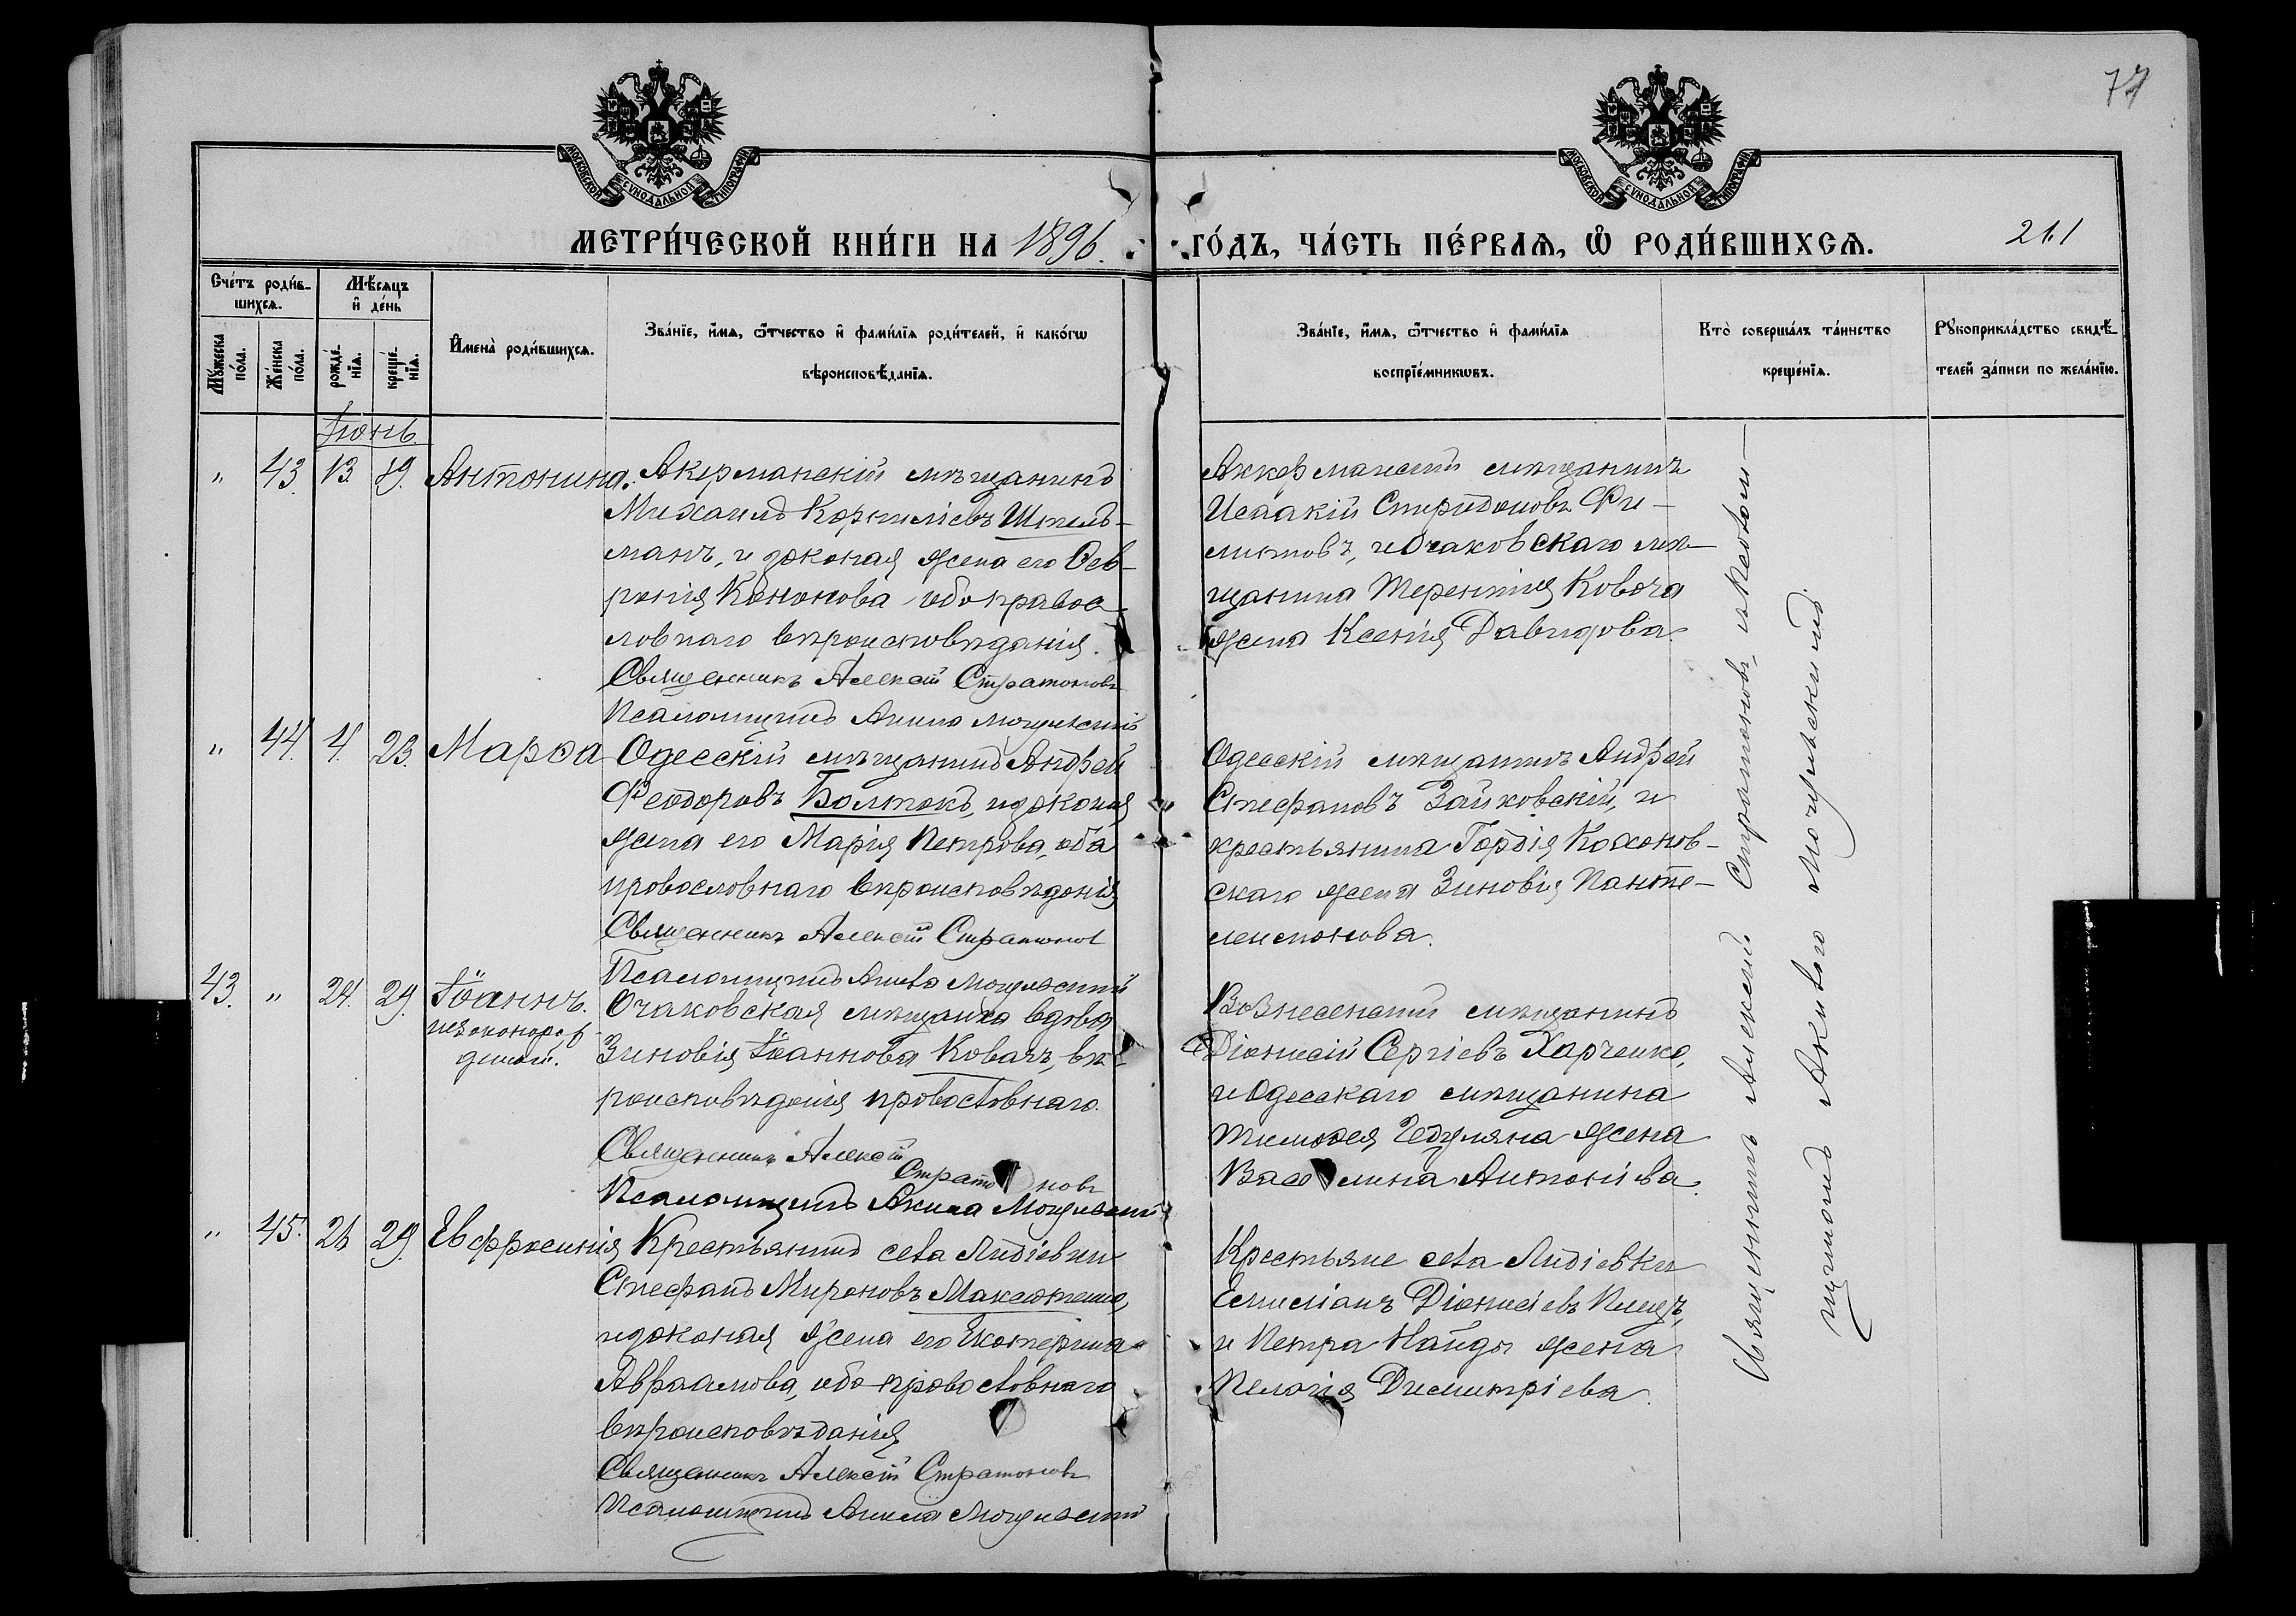 77
МОСКОВСКОЙ СѴНОДАЛЬНОЙ ТИПОГРАФІИ
МОСКОВСКОЙ СѴНОДАЛЬНОЙ ТИПОГРАФІИ
МЕТРИ́ЧЕСКОЙ КНИ́ГИ НА 1896. ГО́ДЪ, ЧА́СТЬ ПЕ́РВАѦ, Ѡ҆ РОДИ́ВШИХСѦ.
261
Сче́тъ роди́в-
шихсѧ.
Мꙋ́жеска по́ла.
Же́нска по́ла.
Мѣ́сѧцъ
и҆ де́нь
рожде́-
нїѧ.
креще́-
нїѧ.
И҆мена̀ роди́вшихсѧ.
Зва́нїе, и҆́мѧ, ѻ҆́тчество и҆ фами́лїѧ роди́телей, и҆ како́гѡ
вѣроисповѣ́данїѧ.
Зва́нїе, и҆́мѧ, ѻ҆́тчество и҆ фами́лїѧ
воспрїе́мникѡвъ.
Кто̀ соверша́лъ та́инство
креще́нїѧ.
Рꙋкоприкла́дство свидѣ́-
телей за́писи по жела́нїю.
Іюнь.
" 43. 13. 19. Антонина.
Акерманскій мѣщанинъ
Михаилъ Корниліевъ Штель-
манъ, и законая жена его Фев-
ронія Кононова, оба правос
ловнаго вѣроисповѣданія.
Священникъ Алексій Стратоновъ
Псаломщикъ Акила Могилевскій
Аккерманскій мѣщанинъ
Исаакій Спиридоновъ Фи-
липповъ, и Очаковскаго мѣ-
щанина Терентія Ковача
жена Ксенія Давидова.
" 44. 4. 23. Марѳа
Одесскій мѣщанинъ Андрей
Феодоровъ Болтокъ, и законая
жена его Марія Петрова, оба
православнаго вѣроисповѣданія
Священникъ Алексій Стратонов
Псаломщикъ Акила Могилевскій
Одесскій мѣщанинъ Андрей
Стефановъ Зайковскій, и
крестьянина Гордія Кохонов-
скаго жена Зиновія Панте-
леимонова.
43. " 24. 29. Іоаннъ.
незаконорож
денный.
Очаковская мѣщанка вдова
Зиновія Іоаннова Ковачъ, вѣ-
роисповѣданія православнаго.
Священникъ Алексій
Стратоновъ
Псаломщикъ Акила Могилевскій
Вознесенскій мѣщанинъ
Діонисій Сергіевъ Харченко,
и Одесскаго мѣщанина
Тимоѳея жена
Василина Антоніева.
" 45. 26 29. Евфросинія
Крестьянинъ села Лидіевки
Стефанъ Мироновъ Максютенко,
и законая жена его Екатерина
Авраамова, оба православнаго
вѣроисповѣданія
Священникъ Алексій Стратоновъ
Псаломщикъ Акила Могилевскій
Крестьяне села Лидіевки
Емиліанъ Діонисіевъ
и Петра Найды жена
Пелагія Димитріева.
Священникъ Алексій Стратоновъ, и Псалом-
щикомъ Акилою Могилевскимъ